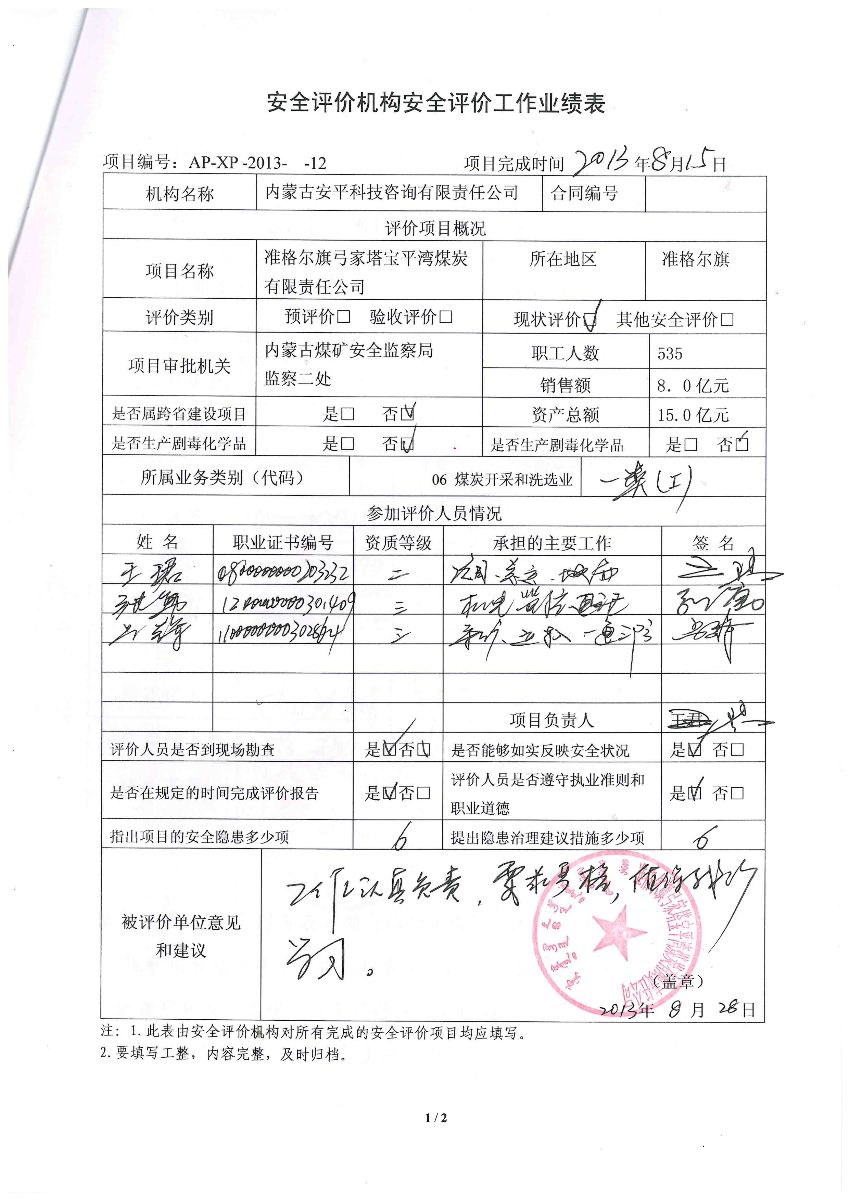 安全评价机构安全评价工作业绩表
项目编号：AP-XP-2013- -12 项目完成时间 2013年8月15日
机构名称 内蒙古安平科技咨询有限责任公司 合同编号
评价项目概况
项目名称 准格尔旗弓家塔宝平湾煤炭有限责任公司 所在地区 准格尔旗
评价类别 预评价□ 验收评价□ 现状评价☑ 其他安全评价□
项目审批机关 内蒙古煤矿安全监察局监察二处 职工人数 535
销售额 8.0亿元
是否属跨省建设项目 是□ 否☑ 资产总额 15.0亿元
是否生产剧毒化学品 是□ 否☑ 是否生产剧毒化学品 是□ 否☑
所属业务类别（代码） 06 煤炭开采和洗选业 一类(工)
参加评价人员情况
姓名 职业证书编号 资质等级 承担的主要工作 签名
王 0800000000203232 二
1200000000301409 三
1100000000302694 三
项目负责人
评价人员是否到现场勘查 是☑否□ 是否能够如实反映安全状况 是☑ 否□
是否在规定的时间完成评价报告 是☑否□ 评价人员是否遵守执业准则和职业道德 是☑ 否□
指出项目的安全隐患多少项 6 提出隐患治理建议措施多少项 6
被评价单位意见和建议
工作认真负责，要求严格，值得我们
学习。
（盖章）
2013年 8 月 28日
注：1.此表由安全评价机构对所有完成的安全评价项目均应填写。
2.要填写工整，内容完整，及时归档。
1 / 2